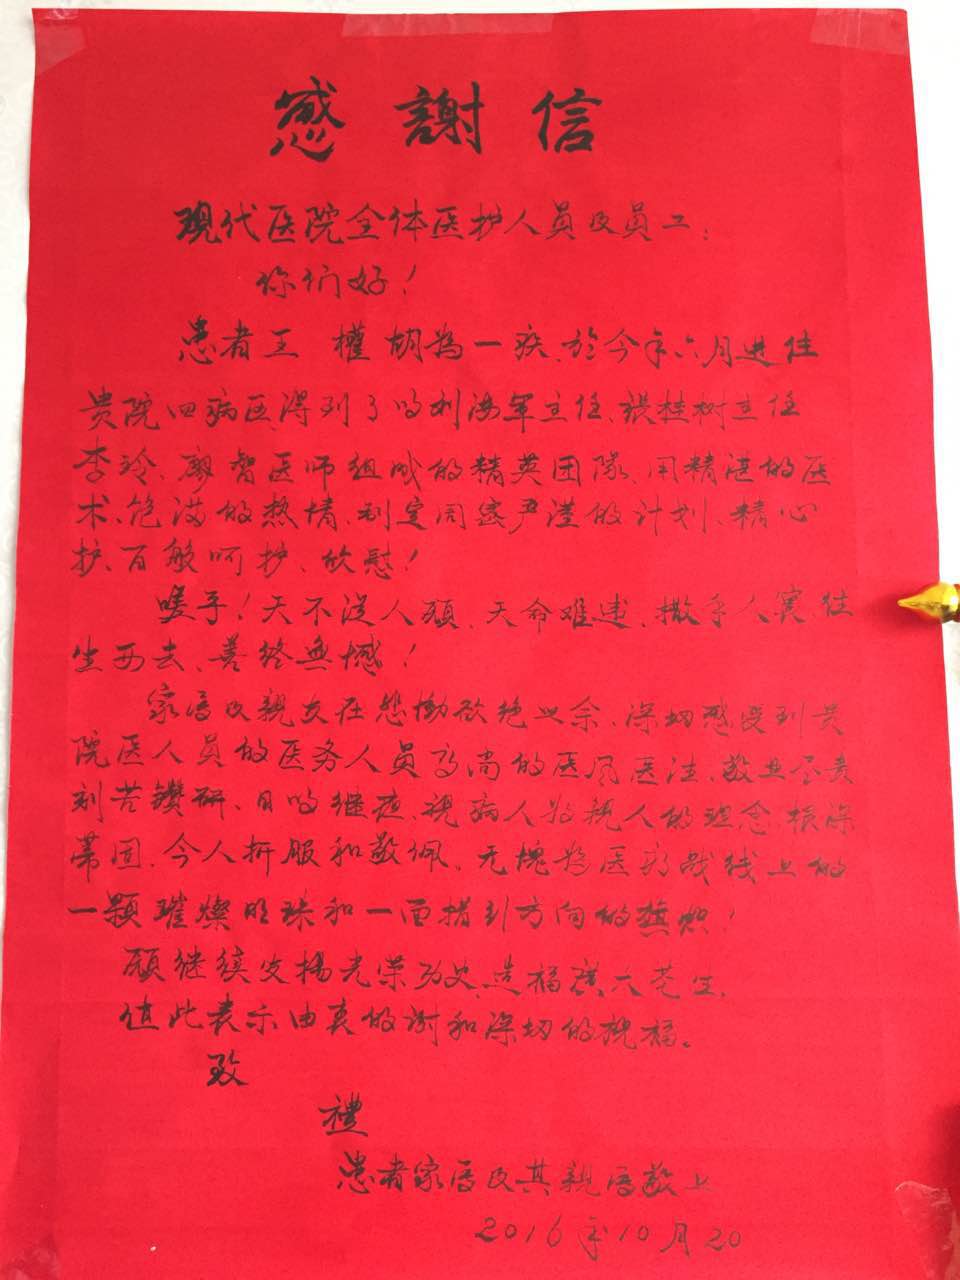 感謝信
現代医院全体医护人员及员工：
你们好！
患者王 權 胡為一疾、於今年六月进住
贵院四病医得到了的刘海军主任、張桂树主任
李玲、廖智医师组成的精英团隊、用精湛的医
术、饱满的热情、制定周密严谨的计划、精心
护、百般呵护、欣慰！
嗟乎！天不從人願、天命难违、撒手人寰往
生西去、善终無憾！
家属及親友在悲慟欲绝之余、深切感受到贵
院医人员的医务人员高尚的医风医法、敬业尽责
刻苦鑽研、日的继夜、視病人为親人的理念、根深
蒂固、令人折服和敬佩、无愧为医疗战线上的
一顆璀燦明珠和一面指引方向的旗帜！
願继续发揚光荣历史、造福廣大苍生、
值此表示由衷的谢和深切的祝福。
致
禮
患者家属及其親属敬上
2016年10月20